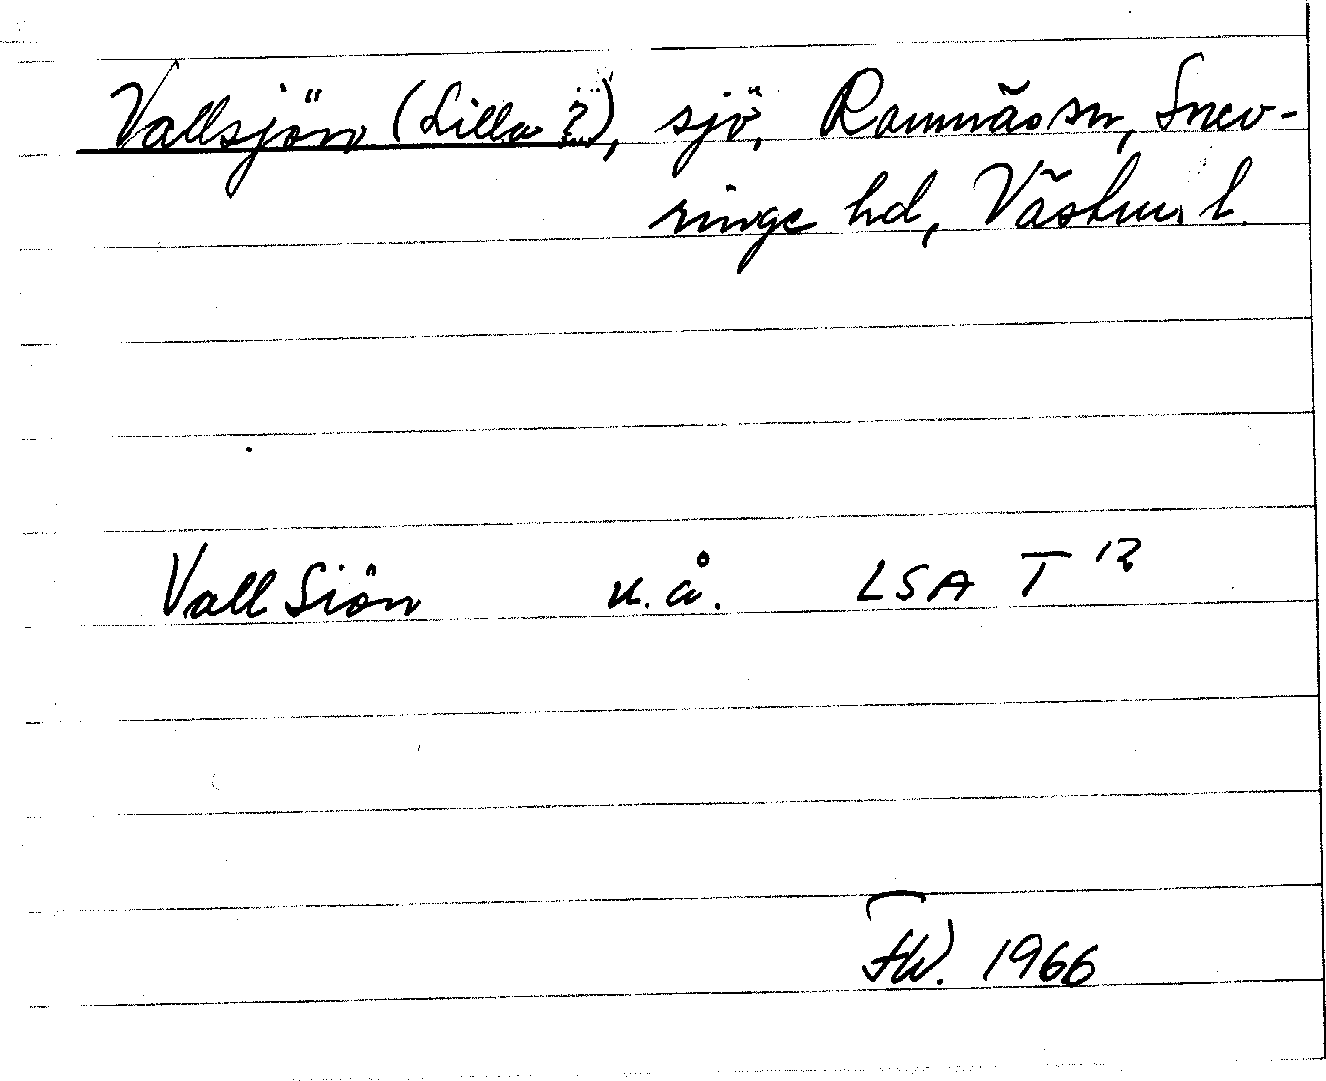 Vallsjön (Lilla ?), sjö, Ramnäs sn, Snev-
ringe hd, Västm. l.
Vall Siön u.å. LSA T 12
FW. 1966